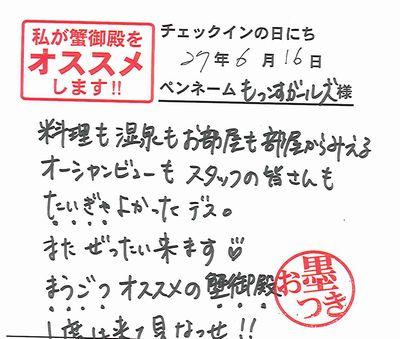 私が蟹御殿を
オススメ
します!!
チェックインの日にち
27年6月16日
ペンネーム もっこすガールズ様
料理も温泉もお部屋も部屋からみえる
オーシャンビューも スタッフの皆さんも
たいぎゃよかったデス。
また ぜったい来ます♡
まうごつ オススメの蟹御殿
お墨つき
1度は来て見なっせ!!